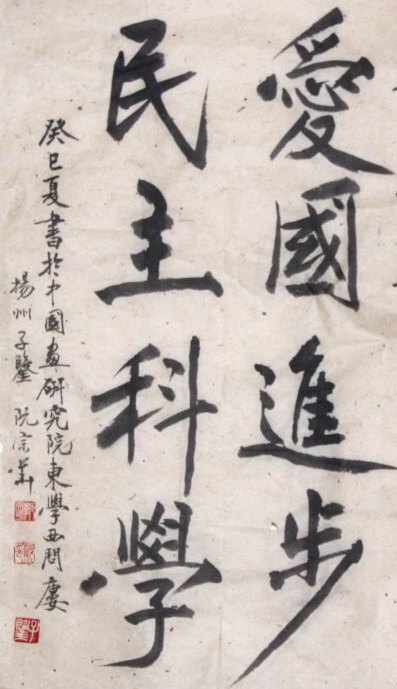 愛國進步
民主科學
癸巳夏書於中國畫研究院東學西問廔
揚州子鑒 阮宗華